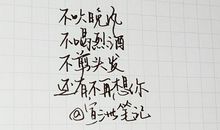 不吹晚风
不喝烈酒
不剪头发
还有不再想你
@宣洲笔记